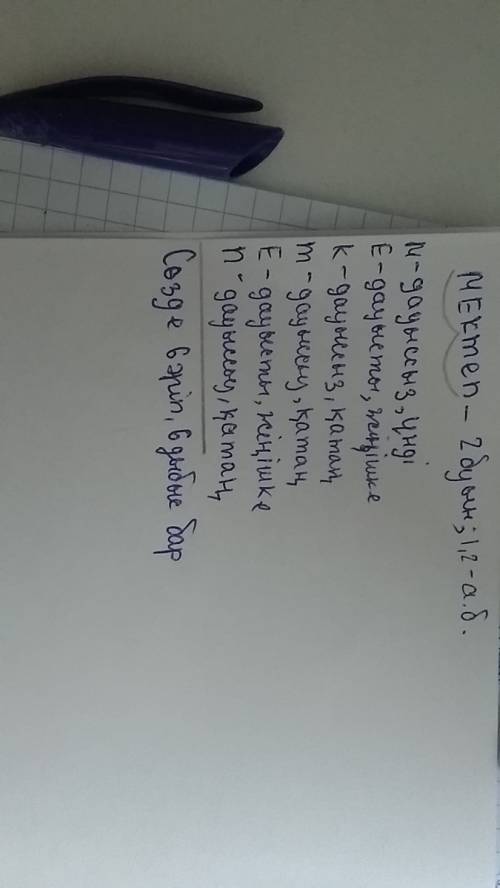 Мектеп – 2 буын; 1,2 – а.б.
М – дауыссыз, үнді
Е – дауысты, жіңішке
К – дауыссыз, қатаң
т – дауыссыз, қатаң
Е – дауысты, жіңішке
п – дауыссыз, қатаң
Сөзде 6 әріп, 6 дыбыс бар